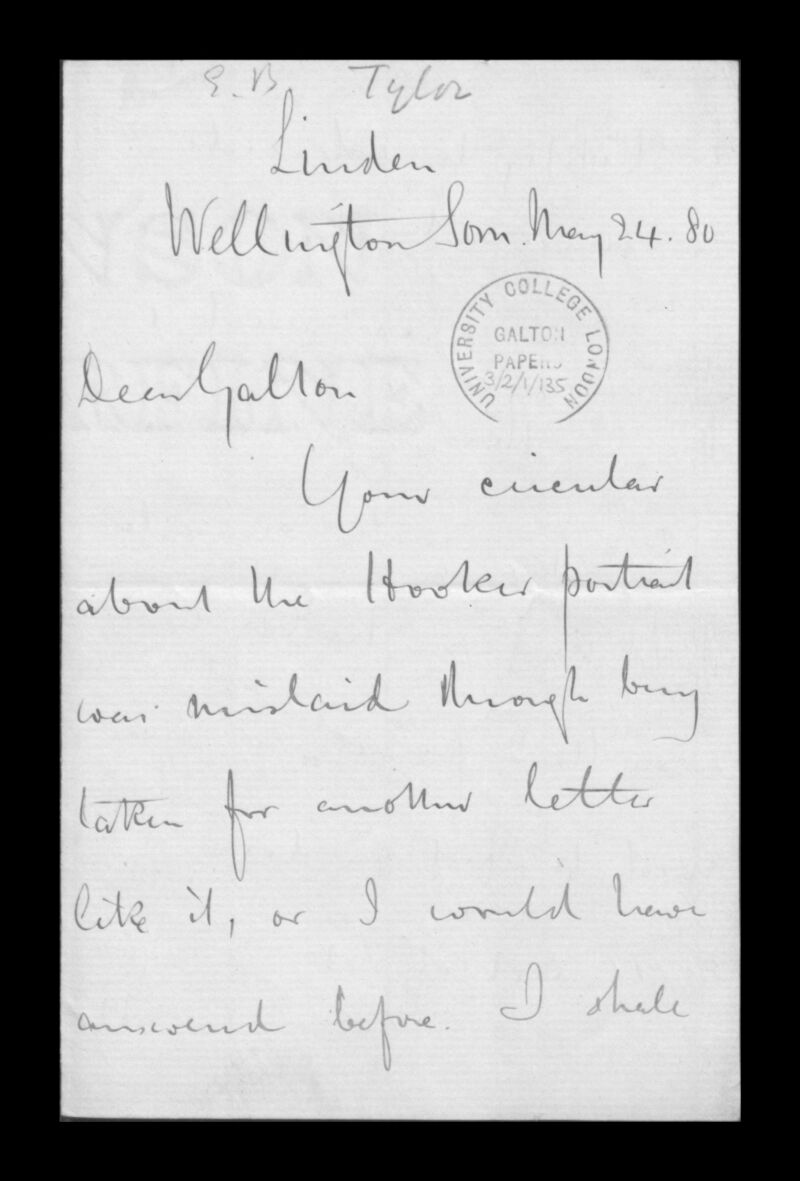 E. B Tylor
Linden
Wellington Som. May 24. 80
UNIVERSITY COLLEGE LONDON
GALTON
PAPERS
3/2/1/135
Dear Galton
Your circular
about the Hooker portrait
was mislaid through being
taken for another letter
like it, or I would have
answered before. I shall